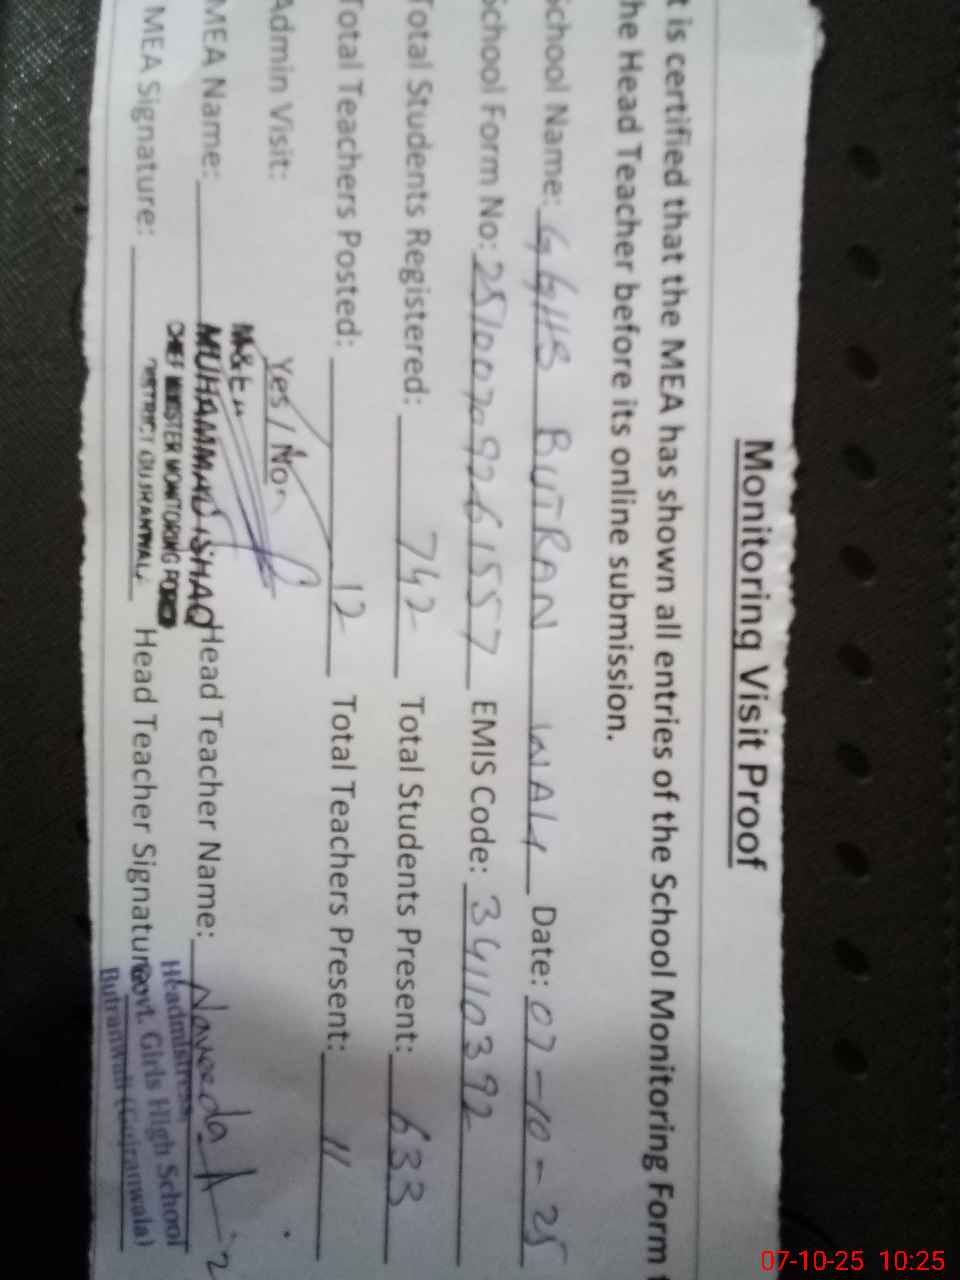 Monitoring Visit Proof
t is certified that the MEA has shown all entries of the School Monitoring Form t
he Head Teacher before its online submission.
School Name: GGHS BUTRAN WALI Date: 07-10-25
School Form No: 251007092 6157 EMIS Code: 34110392
Total Students Registered: 742 Total Students Present: 633
Total Teachers Posted: 12 Total Teachers Present: 11
Admin Visit: Yes / No
MEA Name: MUHAMMAD ISHAQ Head Teacher Name: Naveeda A
CHIEF MINISTER MONITORING FORCE
DISTRICT GUJRANWALA
MEA Signature: Head Teacher Signature:
Headmistress
Govt. Girls High School
Butranwali (Gujranwala)
07-10-25 10:25